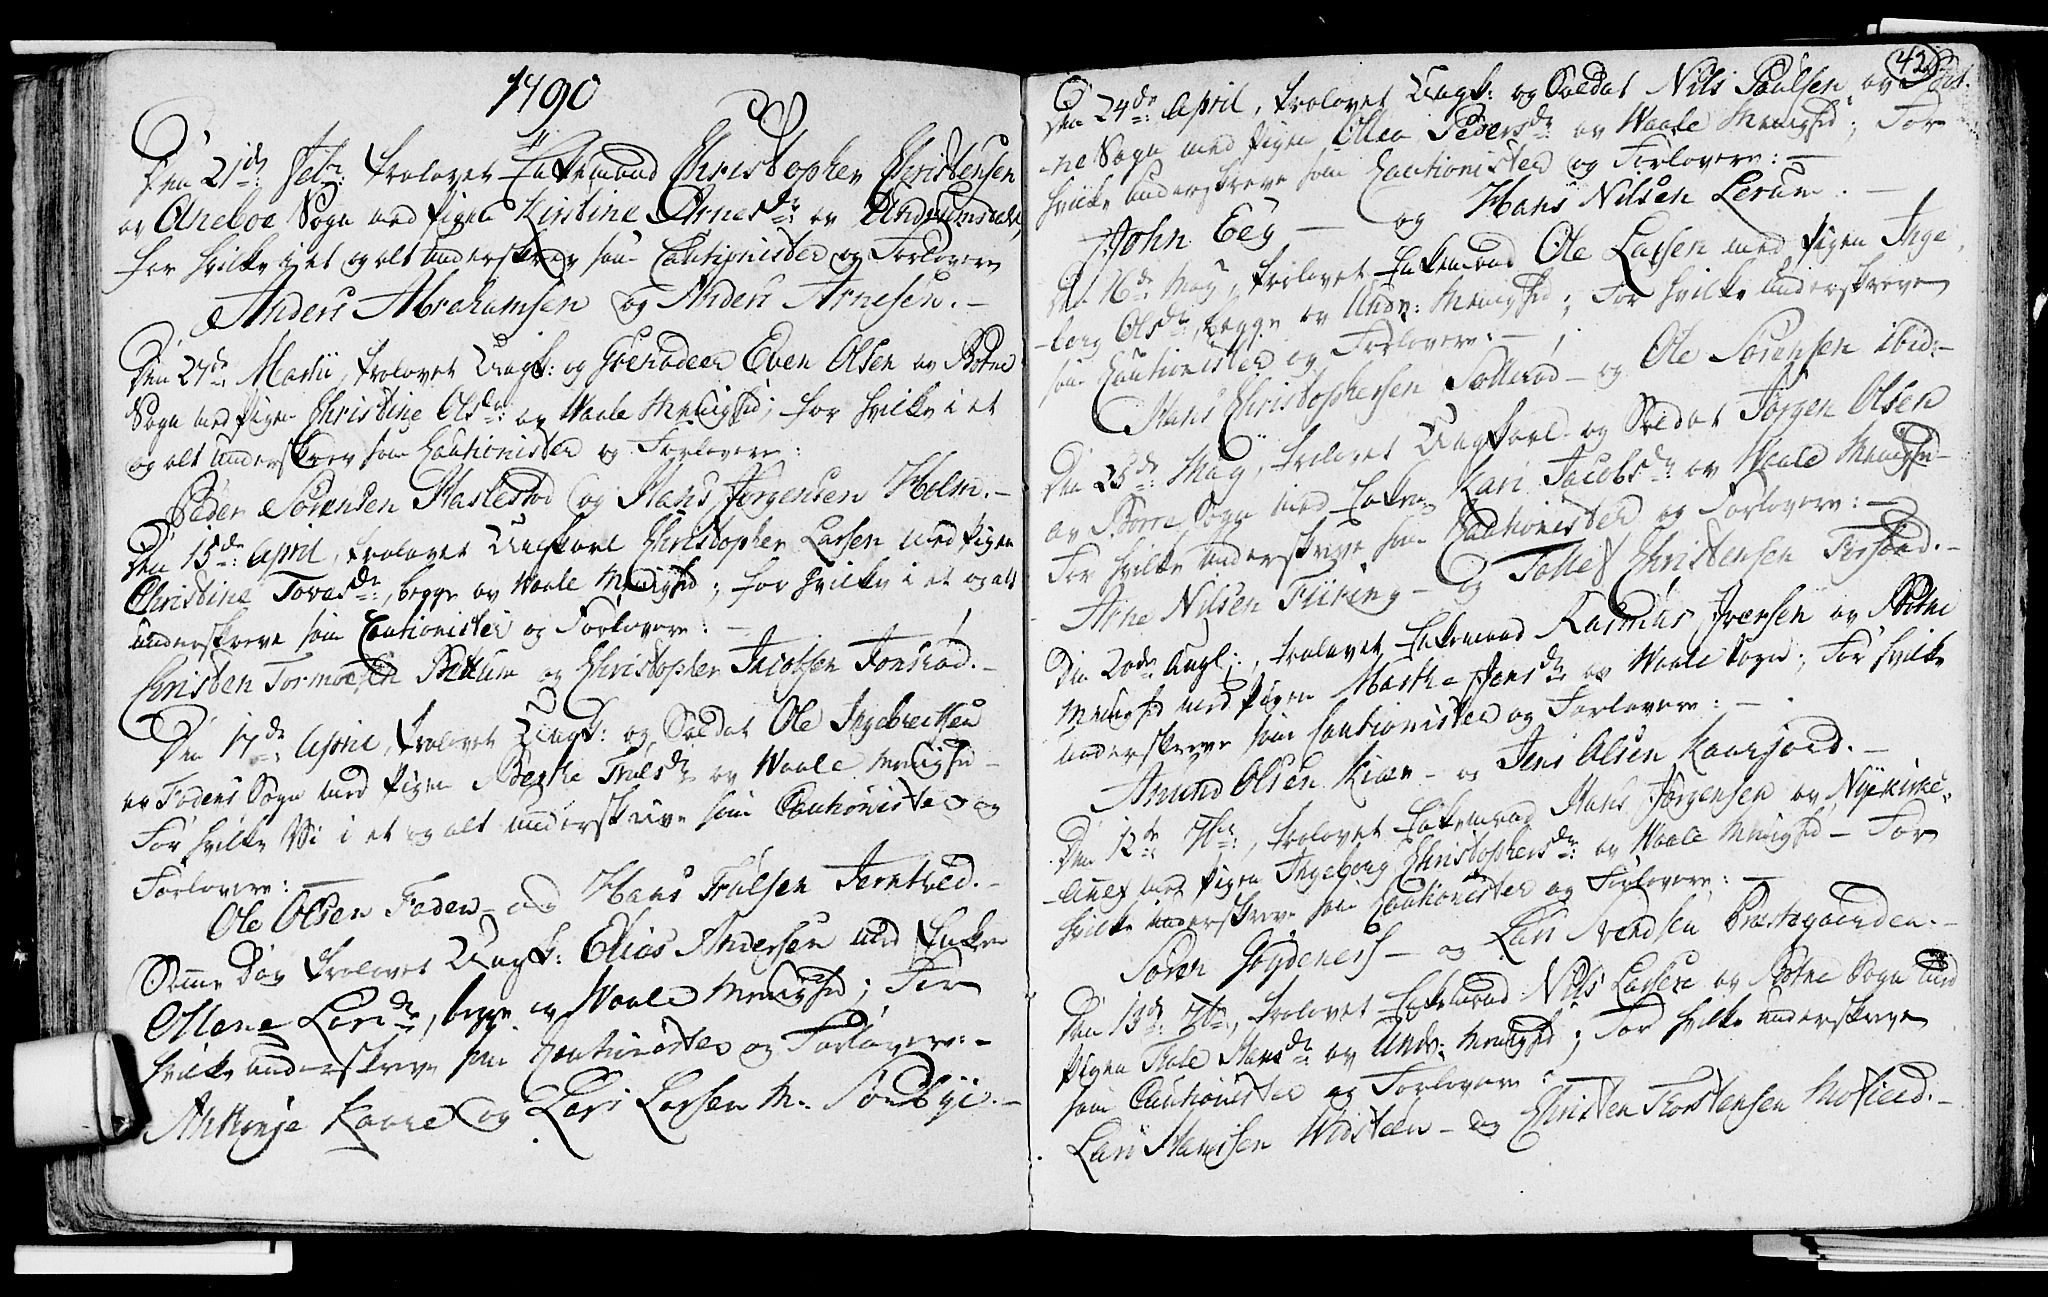 1790
Den 21de Febr: trolovet Enkemand Christopher Christensen
av Aneboe Sogn med Pigen Kirstine Arnesdr: av
for hvilke i et og alt underskrev som Cautionister og Forlovere
Anders Abrahamsen og Anders Arnesen. –
Den 27de Martii, trolovet Ungk: og Grenadeer Even Olsen av Botne
Sogn med Pigen Christine Olsdr: av Waale Menighd; for hvilke i et
og alt underskrev som Cautionister og Forlovere:
Peder Sörensen Haslestad og Hans Jörgensen Holm. –
Den 15de April, trolovet Ungkarl Christopher Larsen med Pigen
Christine Tovesdr:, begge av Waale Menighd; for hvilke i et og alt
underskreve som Cautionister og Forlovere: –
Christen Tormodsen Bettum og Christopher Jacobsen Jonsrød. –
Den 17de April, trolovet Ungk: og Soldat Ole Ingebrectsen
av Fodens Sogn med Pigen Berthe Trulsdr av Waale Menighd –
For hvilke Vi i et og alt underskrive som Cautionister og
Forlovere: –
Ole Olsen Foden – og Hans Trulsen Jerntved. –
Samme Dag trolovet Ungk: Elias Andersen med Enken
Ollene Larsdr, begge av Waale Menighd; For
hvilke underskreve som Cautionister og Forlovere: –
Anthonje Kaare og Lars Larsen N. Sondbye. –
42
Den 24de April, trolovet Ungk: og Soldat Nils Paulsen av Bot-
ne Sogn med Pigen Ollea Pedersdr: av Waale Menighd; For
hvilke underskreve som Cautionister og Forlovere: –
John Eeg – og Hans Nilsen Lerum. –
Den 16de May, trolovet Enkemand Ole Larsen med Pigen Inge-
borg Olsdr:, begge av Undr: Menighd; For hvilke underskreve
som Cautionister og Forlovere: –
Hans Christophersen Solleröd – og Ole Sörensen ibid: –
Den 25de May, trolovet Ungkarl og Soldat Jörgen Olsen
av Borre Sogn med Enken Kari Jacobsdr: av Waale Menighd –
For hvilke underskrive som Cautionister og Forlovere: –
Arne Nilsen Füreng – og Tollef Christensen –
Den 20de Augl:, trolovet Enkemand Rasmus Iversen av Botne
Menighd med Pigen Marthe Jensdr av Waale Sogn; For hvilke
underskreve som Cautionister og Forlovere: –
Amund Olsen Kiær – og Jens Olsen –
Den 12te 7br:, trolovet Enkemand Hans Jörgensen av Nyekirke-
Anex med Pigen Ingeborg Christophersdr: av Waale Menighd – For
hvilke underskreve som Cautionister og Forlovere: –
Sören – og Lars Svendsen Præstegaarden. –
Den 13de 7br:, trolovet Enkemand Nils Larsen av Botne Sogn med
Pigen Thale Hansdr av Undr: Menighd; For hvilke underskreve
som Cautionister og Forlovere: –
Lars Hansen Widsteen – og Christen Torstensen –